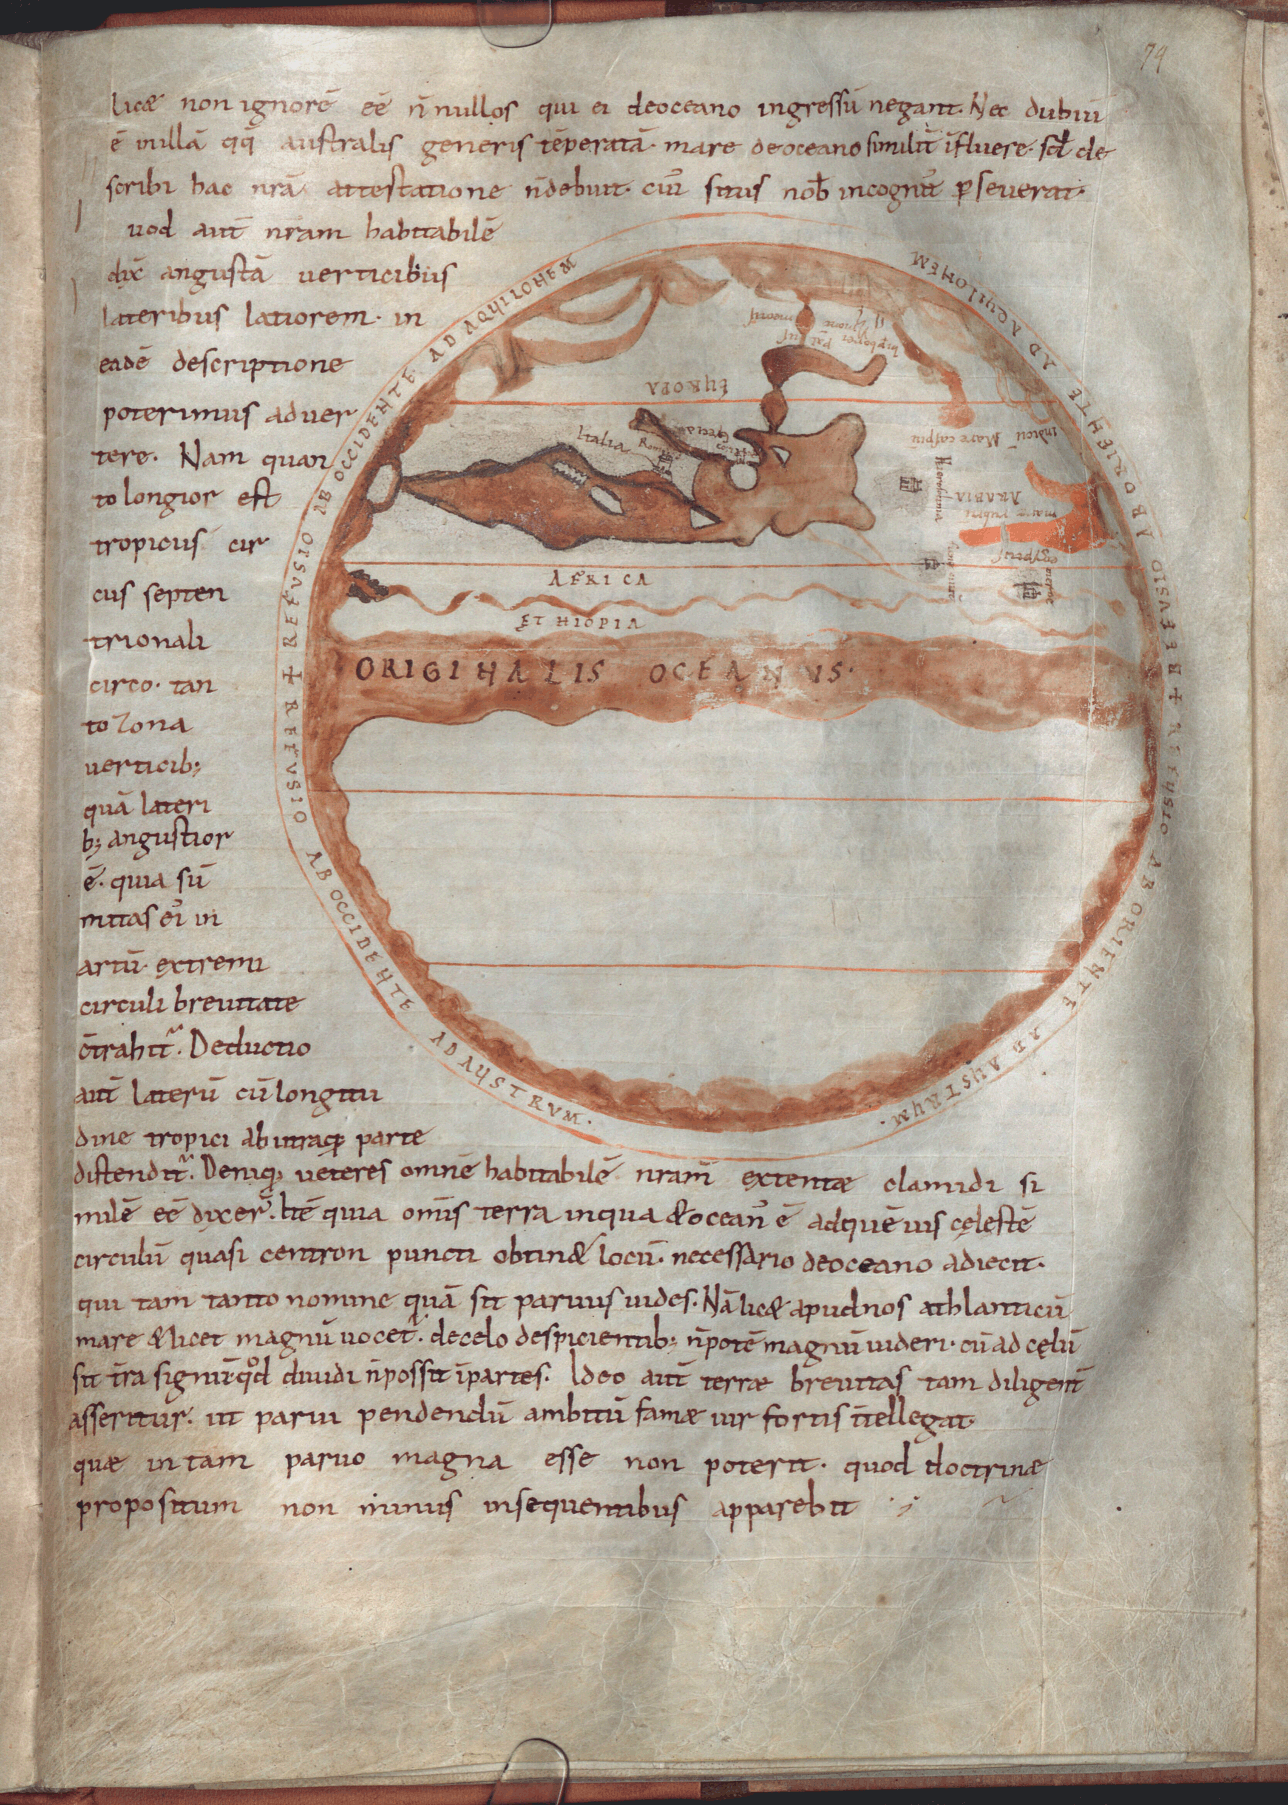 74
licæ non ignorē eē n̄ nullos qui ei deoceano ingressū negant. Nec dubiū
ē inillā qq̄ australis generis tēperatā mare deoceano similit̄ īfluere. sꝫ de
scribi hac nr̄ā attestatione n̄debuit. cui᾽ situs nob̄ incognit᾽ ꝑseverat.
uod aut̄ nr̄am habitabilē
dix̄ angustā verticibus
lateribus latiorem. in
eadē descriptione
poterimus adver
tere. Nam quan
to longior est
tropicus cir
cus septen
trionali
circo. tan
to zona
verticib;
quā lateri
b; angustior
ē. quia sū
mitas ei᾽ in
artū extremi
circuli brevitate
c̄trahit᷑. Deductio
aut̄ laterū cū longitu
dine tropici abutraq; parte
distendit᷑. Deniq; veteres omnē habitabilē nr̄am extentæ clamidi si
milē eē dixer̄. Itē quia omīs terra inqua &ocean᾽ ē adquēvis cęlestē
circulū quasi centron puncti obtin& locū. necessario deoceano adiecit.
qui tam tanto nomine quā sit parvus vides. Nā lic& apudnos athlanticū
mare &licet magnū vocet᷑. decelo despicientib; n̄potē magnū videri. cū ad cęlū
sit t̄ra signū qd̄ dividi n̄possit īpartes. Ideo aut̄ terræ brevitas tam diligent̄
asseritur. ut parvi pendendū ambitū famæ vir fortis īt̄ellegat.
quæ in tam parvo magna esse non poterit. quod doctrinæ
propositum non minus insequentibus apparebit
REFUSIO AB OCCIDENTE AD AQUILONEM
REFUSIO AB ORIENTE AD AQUILONEM
REFUSIO AB OCCIDENTE AD AUSTRUM.
REFUSIO AB ORIENTE AD AUSTRUM.
EUROPA
Italia
Roma
Grecia
Mare caspiū
indicū
Hierosolima
ARABIA
mare rubrū
egyptus
AFRICA
ETHIOPIA
ORIGINALIS OCEANUS.